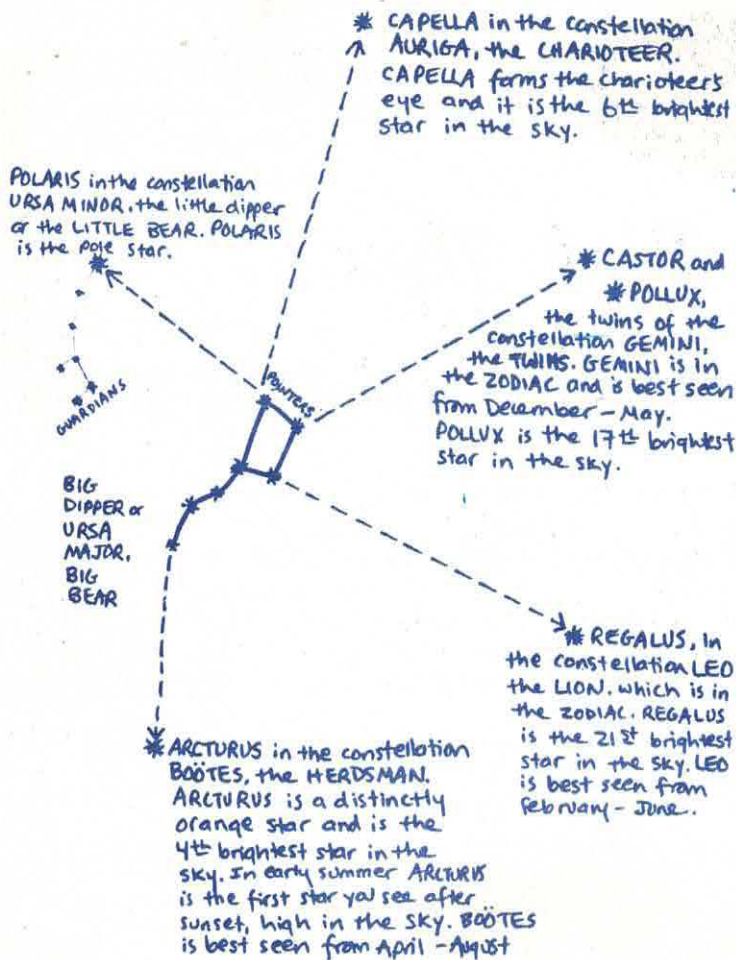 CAPELLA in the constellation
AURIGA, the CHARIOTEER.
CAPELLA forms the charioteers
eye and it is the 6th brightest
star in the sky.
POLARIS in the constellation
URSA MINOR, the little dipper
or the LITTLE BEAR. POLARIS
is the pole star.
GUARDIANS
CASTOR and
POLLUX,
the twins of the
constellation GEMINI,
the TWINS. GEMINI is in
the ZODIAC and is best seen
from December - May.
POLLUX is the 17th brightest
star in the sky.
POINTERS
BIG
DIPPER or
URSA
MAJOR,
BIG
BEAR
REGALUS, in
the constellation LEO
the LION. which is in
the ZODIAC. REGALUS
is the 21st brightest
star in the sky. LEO
is best seen from
february - June.
ARCTURUS in the constellation
BOÖTES, the HERDSMAN.
ARCTURUS is a distinctly
orange star and is the
4th brightest star in the
sky. In early summer ARCTURUS
is the first star you see after
sunset, high in the sky. BOÖTES
is best seen from April - August